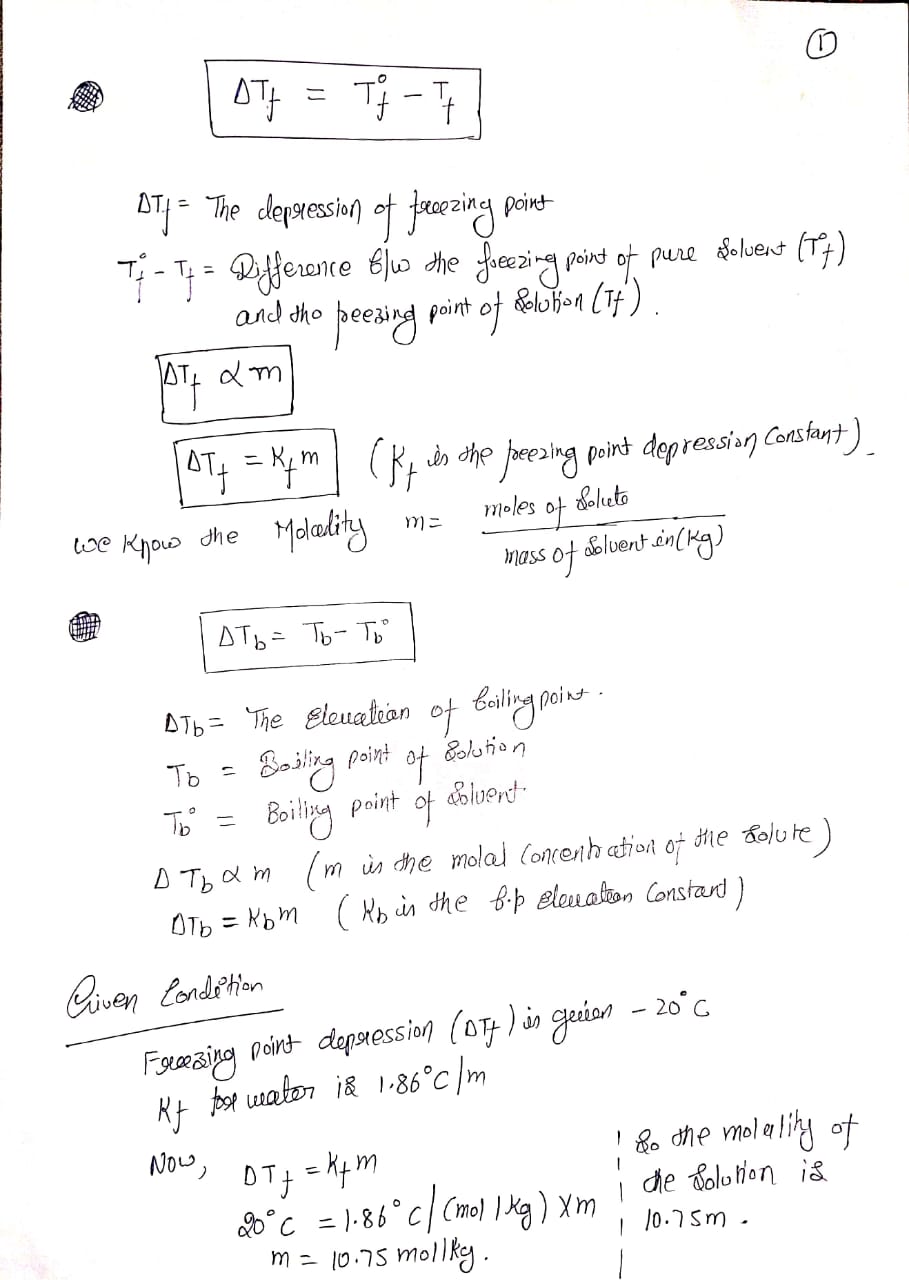 ①
ΔTf = T°f - Tf
ΔTf = The depression of freezing point
T°f - Tf = Difference b/w the freezing point of pure solvent (T°f)
and the freezing point of solution (Tf).
ΔTf α m
ΔTf = Kf m (Kf is the freezing point depression Constant).
we know the Molality m = moles of solute / mass of solvent in (kg)
ΔTb = Tb - Tb°
ΔTb = The Elevation of boiling point.
Tb = Boiling point of solution
Tb° = Boiling point of solvent.
ΔTb α m (m is the molal Concentration of the solute)
ΔTb = Kbm (Kb is the b.p elevation Constant)
Given Condition
Freezing point depression (ΔTf) is given - 20°C
Kf for water is 1.86°C/m
Now, ΔTf = Kfm
20°C = 1.86°C/(mol/kg) X m
m = 10.75 mol/kg.
So the molality of
the solution is
10.75m.